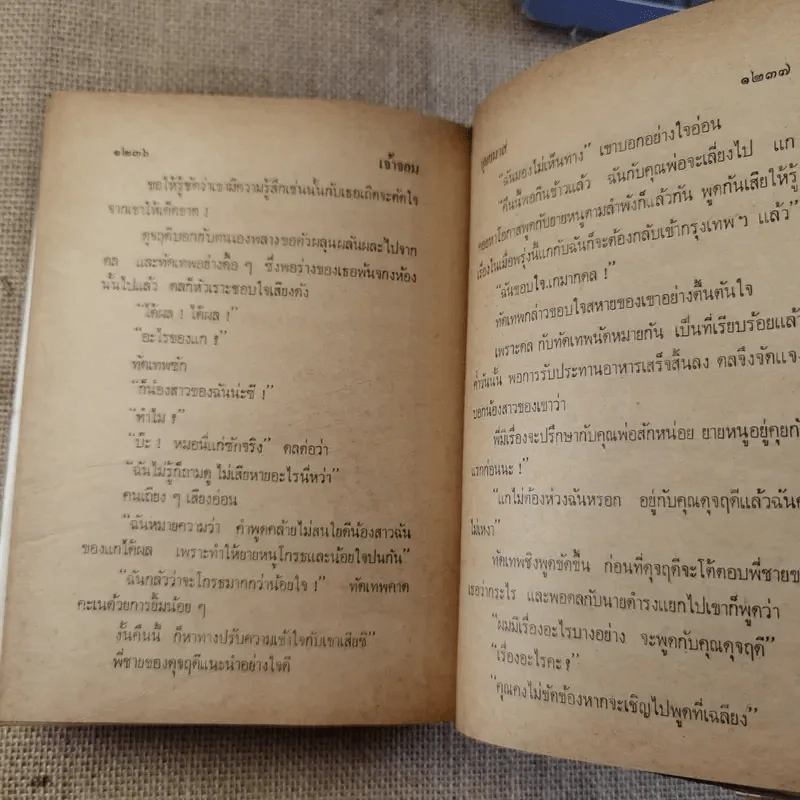 ๑๒๓๖
เจ้าจอม
ขอให้รู้ชัดว่าเขามีความรู้สึกเช่นนั้นกับเธอเถิดจะตัดใจ
จากเขาให้เด็ดขาด !
ดุจฤดีบอกกับตนเองพลางขอตัวผลุนผลันผละไปจาก
ดล และทัดเทพอย่างดื้อ ๆ ซึ่งพอร่างของเธอพ้นจากห้อง
นั้นไปแล้ว ดลก็หัวเราะชอบใจเสียงดัง
“ได้ผล ! ได้ผล !”
“อะไรของแก ?”
ทัดเทพซัก
“ก็น้องสาวของฉันน่ะซี !”
“ทำไม ?”
“บ๊ะ ! หมอนี่แก่ซักจริง” ดลต่อว่า
“ฉันไม่รู้ก็ถามดู ไม่เสียหายอะไรนี่หว่า”
คนเถียง ๆ เสียงอ่อน
“ฉันหมายความว่า คำพูดคล้ายไม่สนใยดีน้องสาวฉัน
ของแกได้ผล เพราะทำให้ยายหนูโกรธและน้อยใจปนกัน”
“ฉันกลัวว่าจะโกรธมากกว่าน้อยใจ !” ทัดเทพคาด
คะเนด้วยการยิ้มน้อย ๆ
งั้นคืนนี้ ก็หาทางปรับความเข้าใจกับเขาเสียซิ”
พี่ชายของดุจฤดีแนะนำอย่างใจดี
๑๒๓๗
“ฉันมองไม่เห็นทาง” เขาบอกอย่างใจอ่อน
“คืนนี้พอกินข้าวแล้ว ฉันกับคุณพ่อจะเลี่ยงไป แก
หาโอกาสพูดกับยายหนูตามลำพังก็แล้วกัน พูดกันเสียให้รู้
เรื่องในเมื่อพรุ่งนี้แกกับฉันก็จะต้องกลับเข้ากรุงเทพ ฯ แล้ว”
“ฉันขอบใจแกมากดล !”
ทัดเทพกล่าวขอบใจสหายของเขาอย่างตื้นตันใจ
เพราะดล กับทัดเทพนัดหมายกัน เป็นที่เรียบร้อยแล้ว
ค่ำวันนั้น พอการรับประทานอาหารเสร็จสิ้นลง ดลจึงจัดแจง
บอกน้องสาวของเขาว่า
พี่มีเรื่องจะปรึกษากับคุณพ่อสักหน่อย ยายหนูอยู่คุยกับ
แรกก่อนนะ !”
“แกไม่ต้องห่วงฉันหรอก อยู่กับคุณดุจฤดีแล้วฉัน
ไม่เหงา”
ทัดเทพชิงพูดขัดขึ้น ก่อนที่ดุจฤดีจะโต้ตอบพี่ชายของ
เธอว่ากระไร และพอดลกับนายดำรงแยกไปเขาก็พูดว่า
“ผมมีเรื่องอะไรบางอย่าง จะพูดกับคุณดุจฤดี”
“เรื่องอะไรคะ ?”
“คุณคงไม่ขัดข้องหากจะเชิญไปพูดที่เฉลียง”